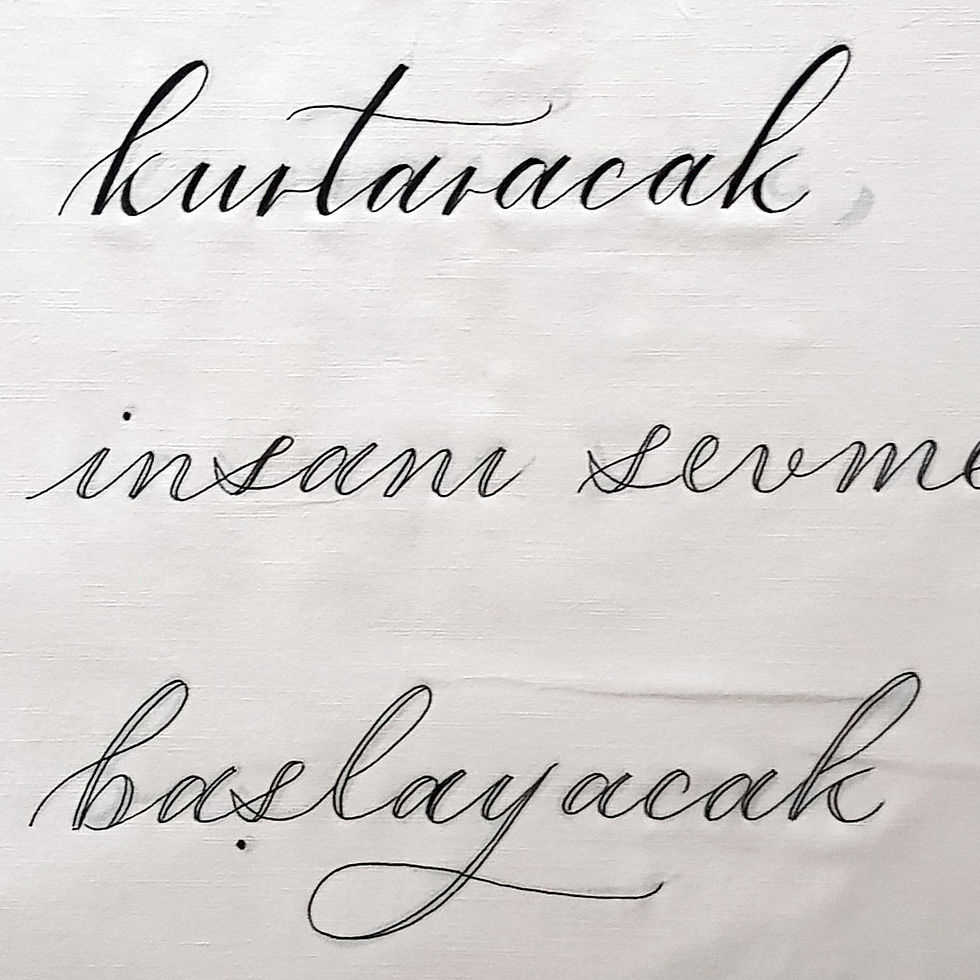 kurtaracak
insanı sevme
başlayacak